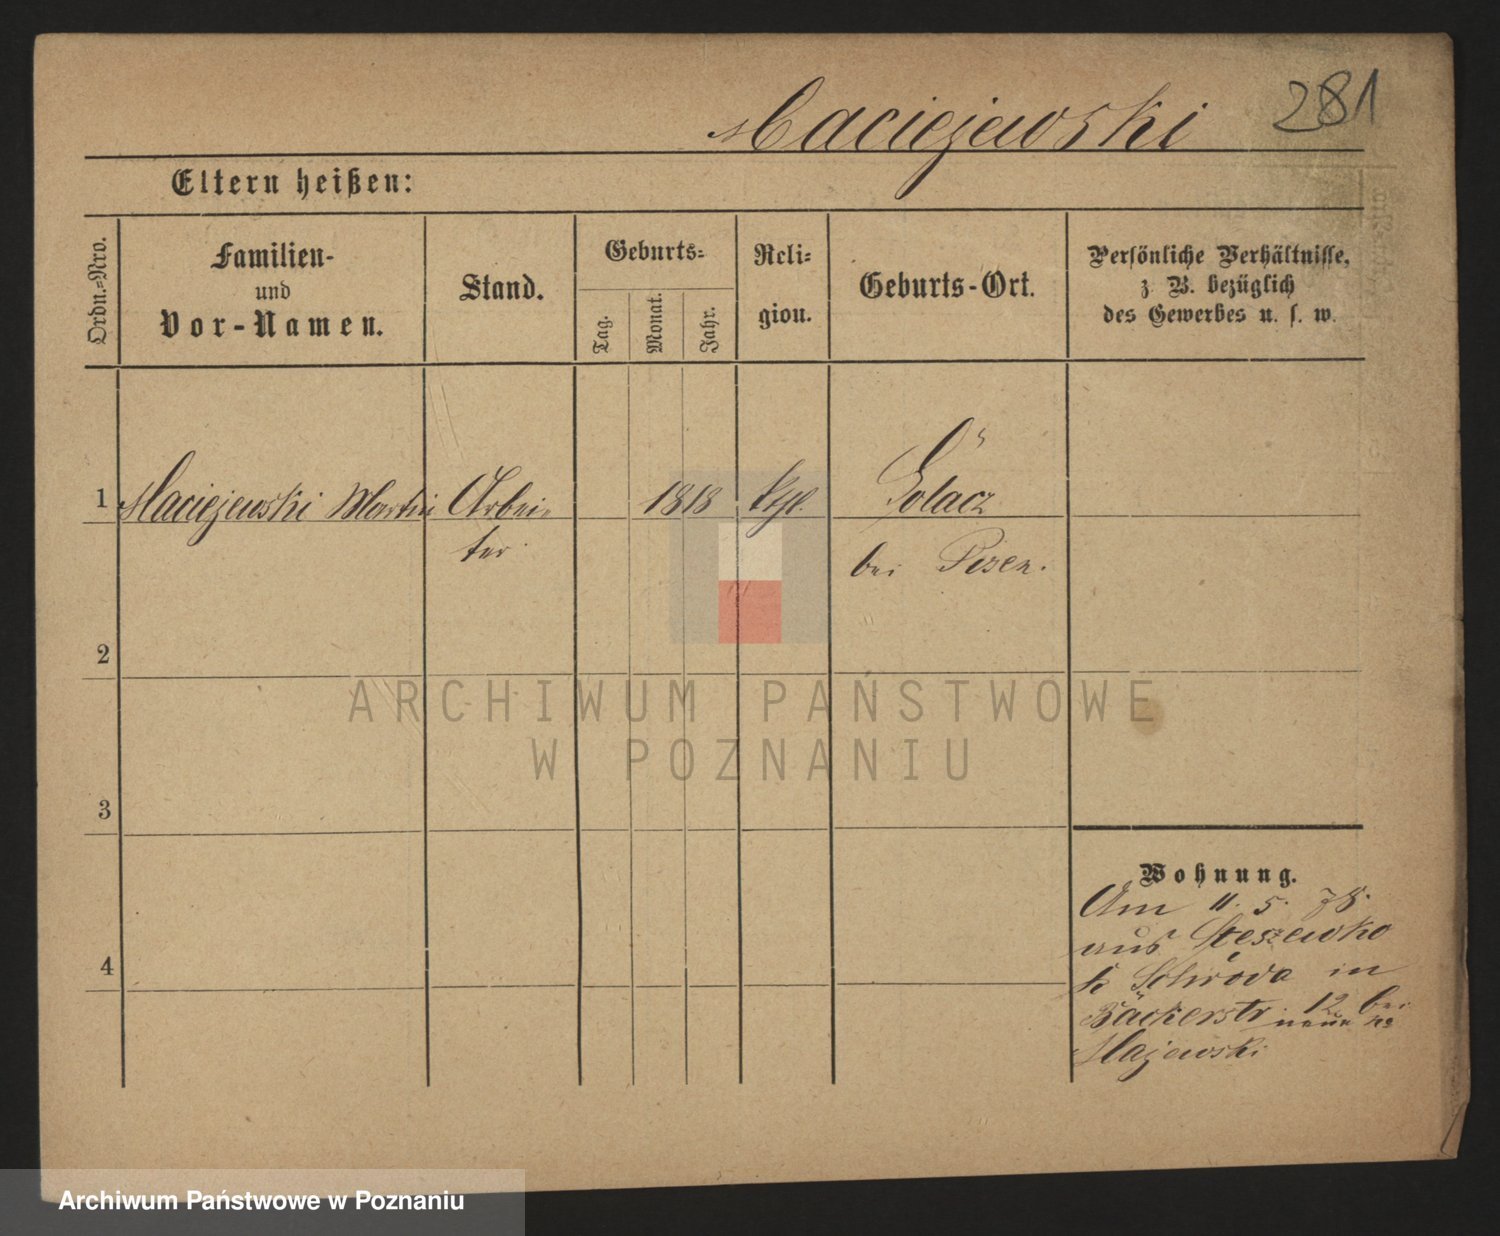 Maciejewski 281
Eltern heißen:
Ordn.-Nro.
Familien-
und
Vor-Namen.
Stand.
Geburts-
Tag.
Monat.
Jahr.
Reli-
gion.
Geburts-Ort.
Persönliche Verhältnisse,
z B. bezüglich
des Gewerbes u. s. w.
1 Maciejewski Martin Arbei- 1818 kthl. Golacz
ter bei Posen.
2
3
4
Wohnung.
Am 11. 5. 78.
aus Stęszewko
k Schroda in
Bäckerstr 12 bei
neue
Majewski
ARCHIWUM PAŃSTWOWE
W POZNANIU
Archiwum Państwowe w Poznaniu